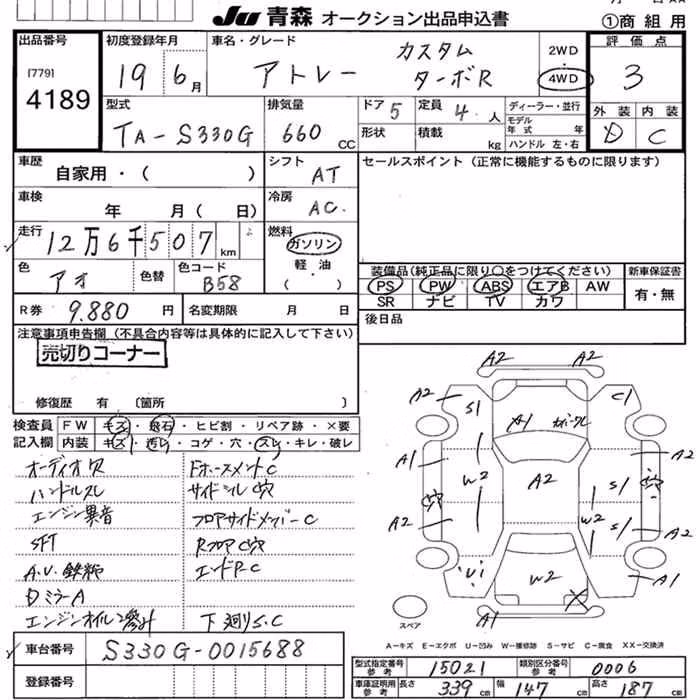 Ju 青森 オークション出品申込書 ①商組用
出品番号 初度登録年月 車名・グレード 評価点
[779] 4189
19 6月 アトレー カスタム ターボR
2WD 4WD
3
型式 排気量 ドア 5 定員 4.人 ディーラー・並行 外装 内装
TA-S330G 660 CC 形状 積載 kg モデル年式 年 D C
ハンドル 左・右
車歴 シフト セールスポイント (正常に機能するものに限ります)
自家用・( ) AT
車検 冷房
年 月( 日) AC.
走行 燃料
12万6千507km ガソリン
色 色替 色コード 軽・油
アオ B58 ( ・ )
装備品(純正品に限り○をつけてください) 新車保証書
PS PW ABS エアB AW 有・無
SR ナビ TV カワ
R券 9.880円 名変期限 月 日 後日品
注意事項申告欄 (不具合内容等は具体的に記入して下さい)
売切りコーナー
修復歴 有 〔箇所 〕
検査員 FW キズ・飛石・ヒビ割・リペア跡・×要
記入欄 内装 キズ・汚レ・コゲ・穴・スレ・キレ・破レ
オーディオ穴 Fホースメントc
ハンドルスレ サイドシルC穴
エンジン異音 フロアサイドメンバーC
SFT RフロアC穴
A.V.鉄粉 エンドP-C
DミラーA
エンジンオイル2滲み 下廻りS.C
A2 A2
A2 S1 A1 C1
A1 W2 A2 S1 A1
穴 穴
A2 W2 S1 A2
U1 W2 A1
A1
スペア
A-キズ E-エクボ U-凹み W-補修跡 S-サビ C-腐食 XX-交換済
車台番号 S330G-0015688
登録番号
型式指定番号参考 15021 類別区分番号参考 0006
車庫証明用参考 長さ 339cm 幅 147cm 高さ 187cm